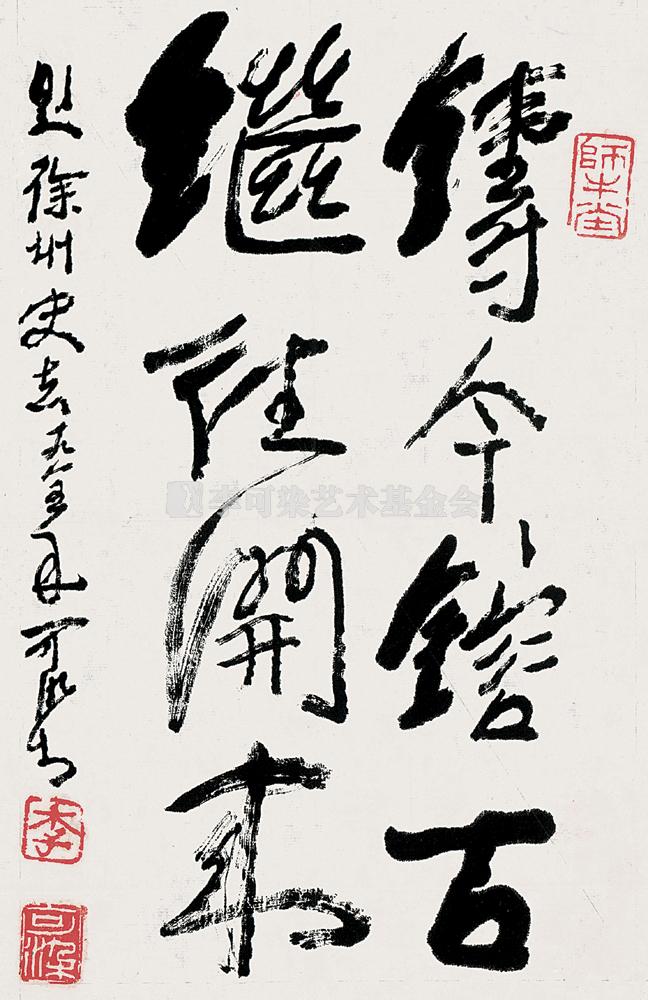 師牛堂
鑄今鎔古
繼往開來
題徐州史志 九八五年 可染書
李
可染
李可染艺术基金会